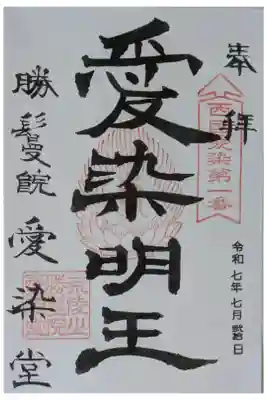 奉拝
西国愛染第一番
令和七年七月日
愛染明王
勝鬘院愛染堂